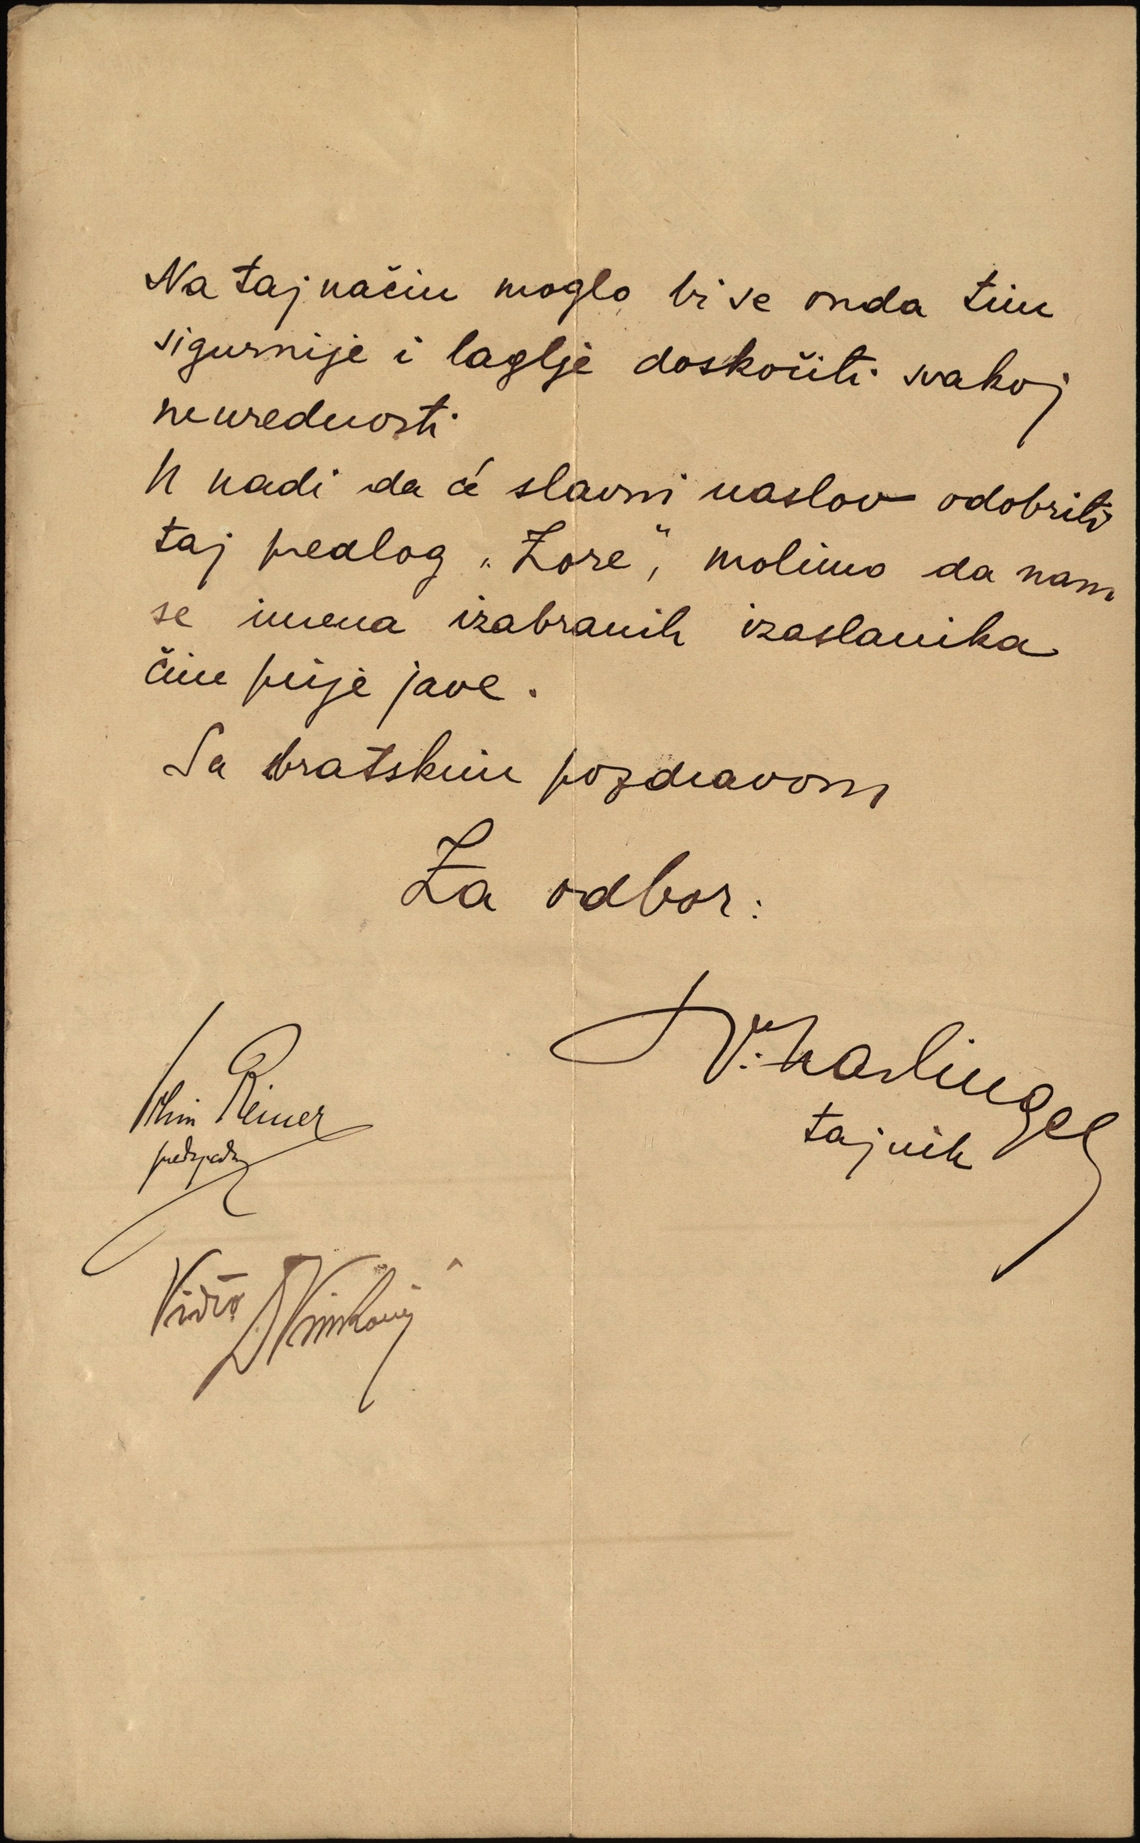 Na taj način moglo bi se onda tim
sigurnije i laglje doskočiti svakoj
neurednosti
U nadi da će slavni naslov odobriti
taj predlog „Zore“, molimo da nam
se imena izabranih izaslanika
čim prije jave.
Sa bratskim pozdravom
Za odbor:
Reiner
tajnik
Vidio